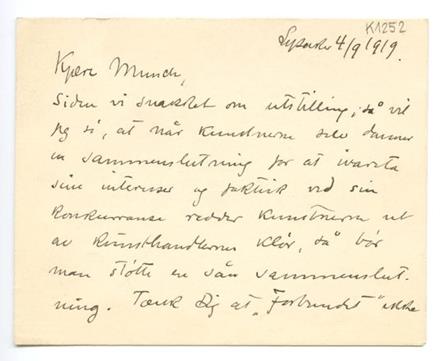 K1252
Lysaker 4/9 1919.
Kjære Munch,
Siden vi snakket om utstilling, så vil
jeg si, at når kunstnerne selv danner
en sammenslutning for at ivareta
sine interesser og faktisk ved sin
konkurranse redder kunstnerne ut
av kunsthandlernes klør, så bör
man støtte en sån sammenslut-
ning. Tænk Dig at „Forbundet" ikke